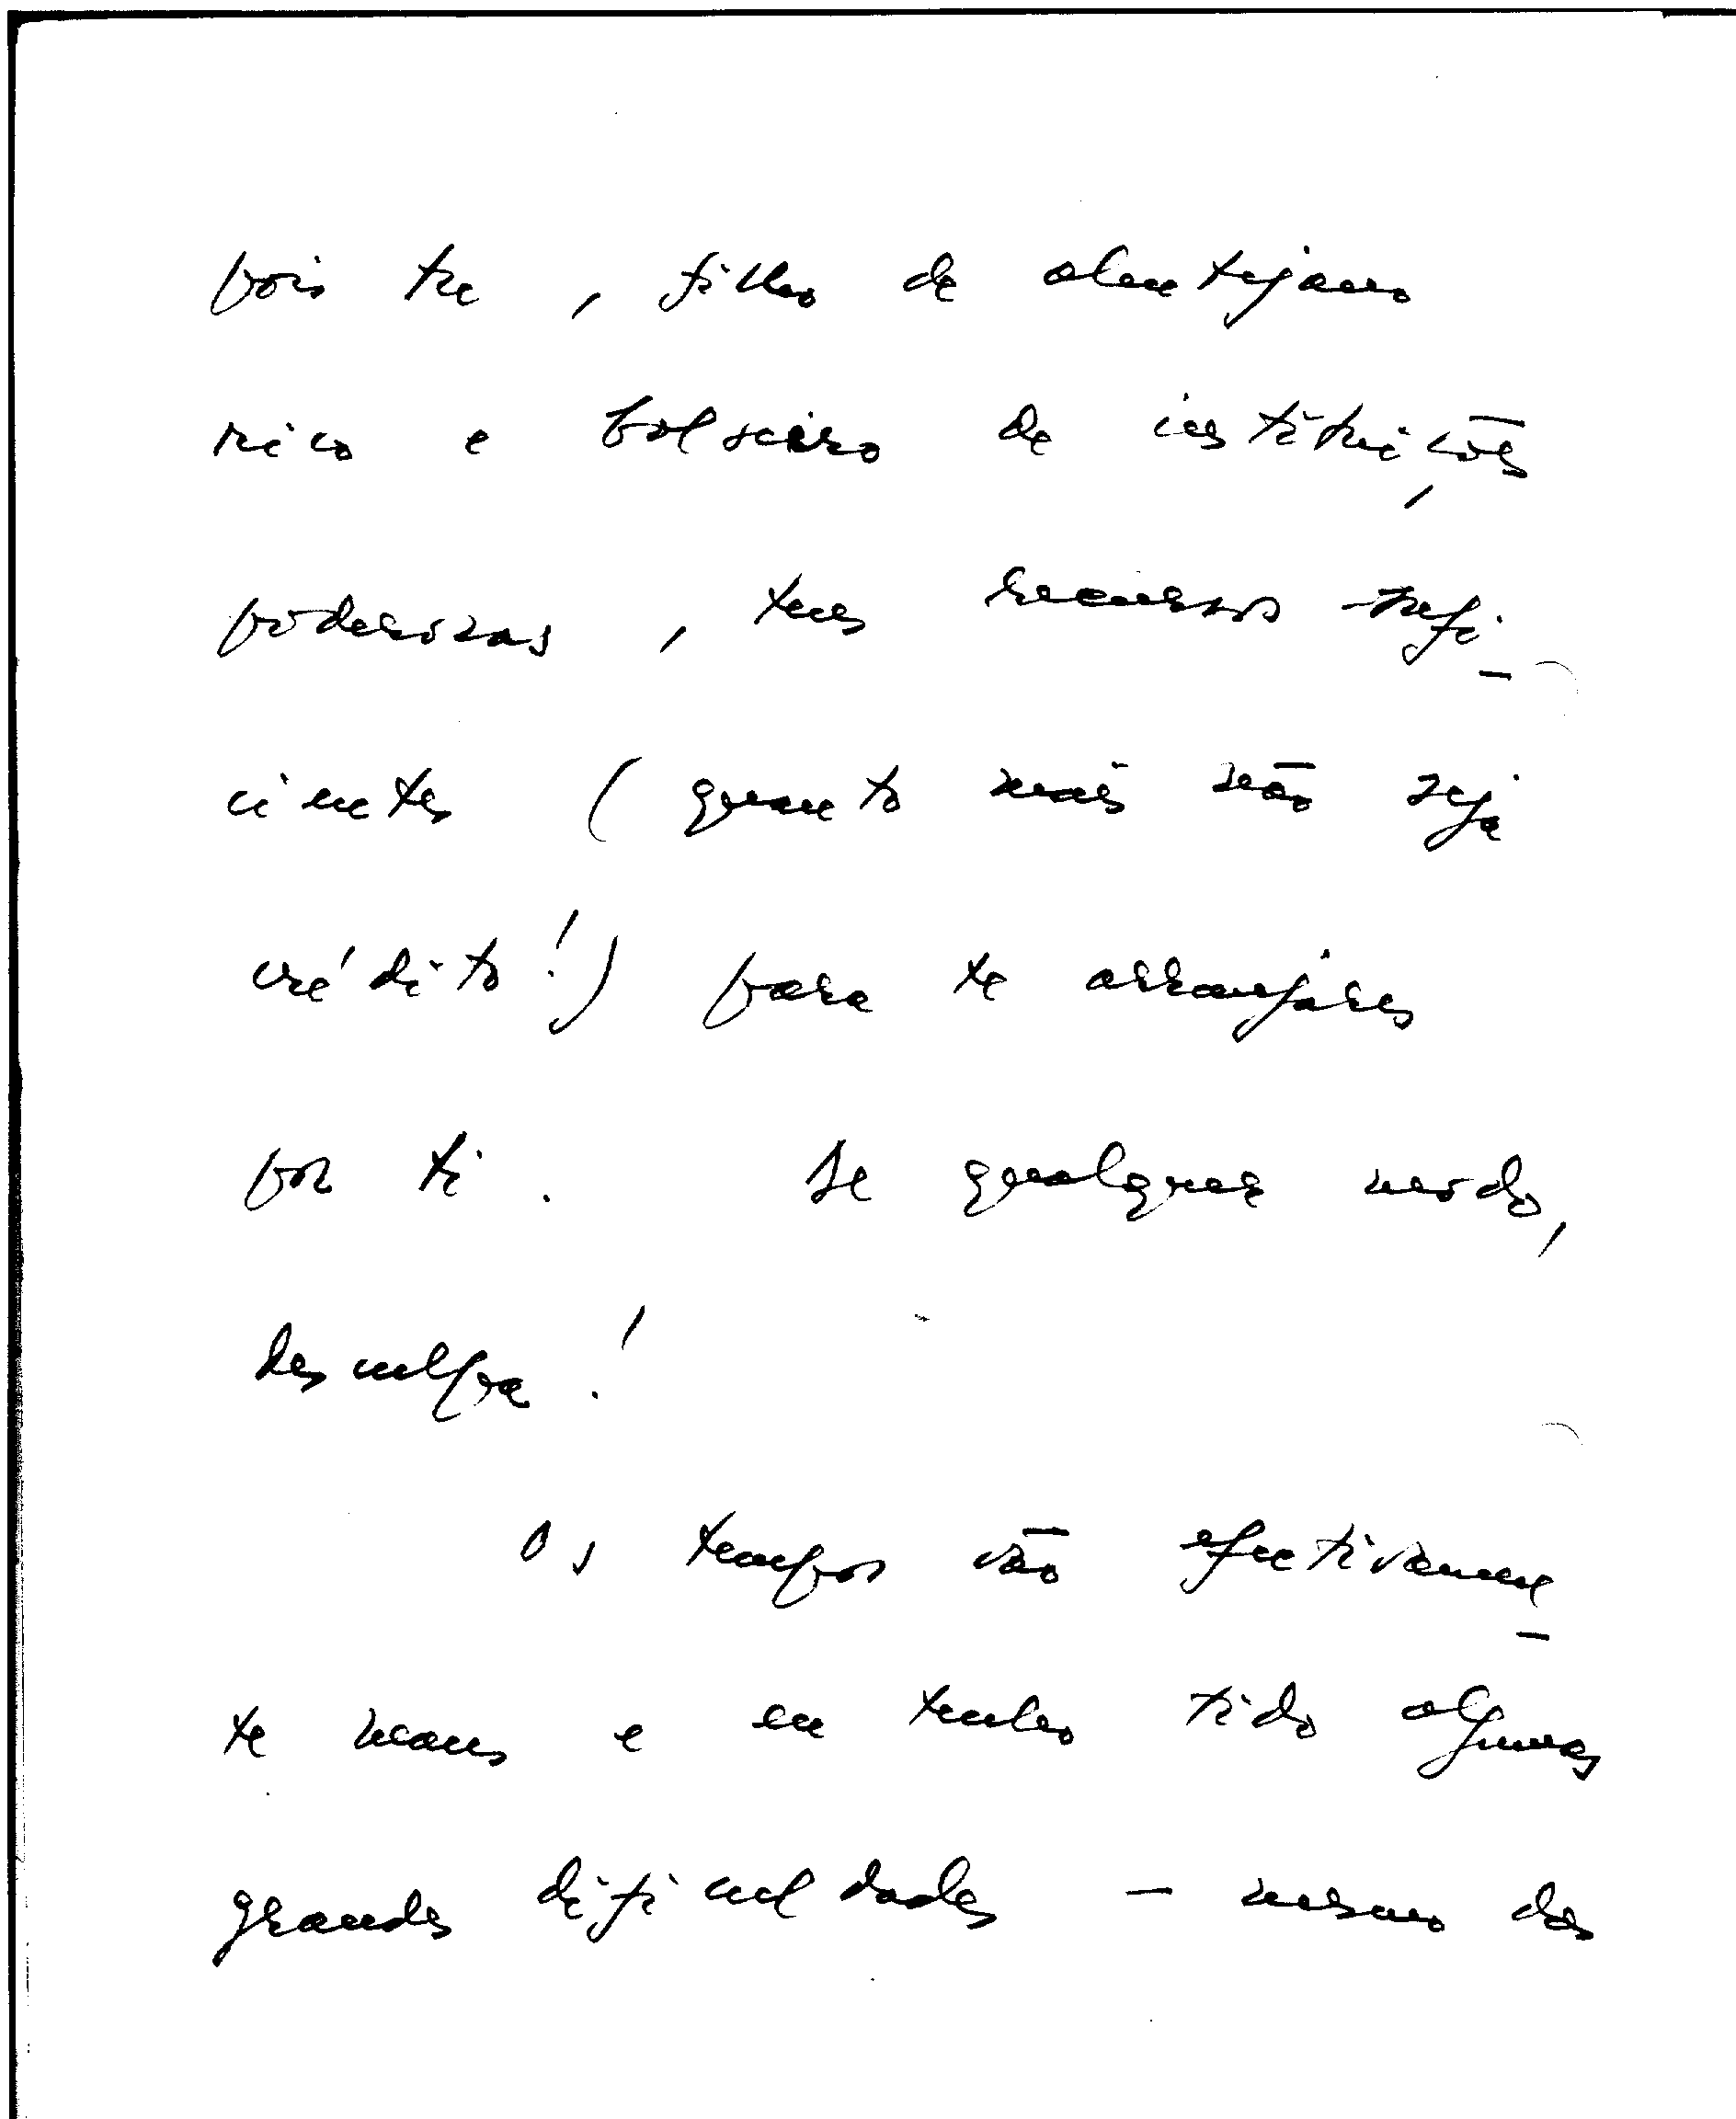 pois tu, filho de alentejano
rico e bolseiro de instituições
poderosas, tens recursos sufi-
cientes (quanto mais não seja
crédito!) para te arranjares
por ti. De qualquer modo,
desculpa!
Os tempos vão efectivamen-
te maus e eu tenho tido algumas
grandes dificuldades — mesmo das